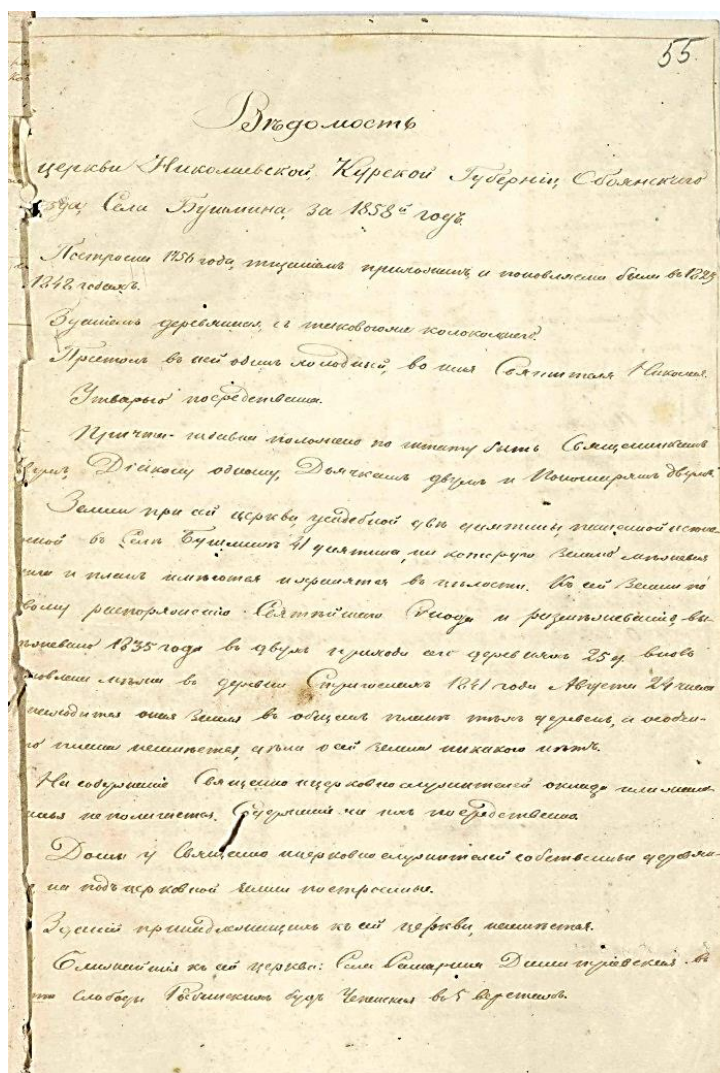 55
Вѣдомость
церкви Николаевской, Курской Губерніи, Обоянскаго
Села Бушмина, за 1858й годъ.
Построена 1756 года, тщаніемъ прихожанъ, и поновляема была въ 1829
1848 годахъ.
Зданіемъ деревянная, съ таковою же колокольнею.
Престолъ въ ней одинъ холодный, во имя Святителя Николая.
Утварью посредственна.
Причта издавна положено по штату быть Священникамъ
двумъ, Діякону одному, Дьячкамъ двумъ и Пономарямъ двумъ.
Земли при сей церкви усадебной двѣ десятины, пашенной
въ Селѣ Бушминѣ 41 десятина, на которую землю межевая
и планъ имѣются и хранятся въ цѣлости. Къ сей земли по
распоряженію Святѣйшаго Синода и размежеванію,
1835 года въ двухъ прихода сего деревняхъ 25 и вновь
межи въ деревни 1841 года Августа 24 числа
находится оная земля въ общемъ планѣ тѣхъ деревень, а особен-
плана неимѣется, и дѣла о сей земли никакого нѣтъ.
На содержаніе Священно и церковнослужителей оклада
не полагается. Содержаніе ихъ посредственно.
Домы у Священно и церковнослужителей собственные деревян-
на подъ церковной земли построенные.
Зданій принадлежащихъ къ сей церкви, неимѣется.
Ближайшія къ сей церкви: Села Димитріевская въ
слободы въ 5 верстахъ.